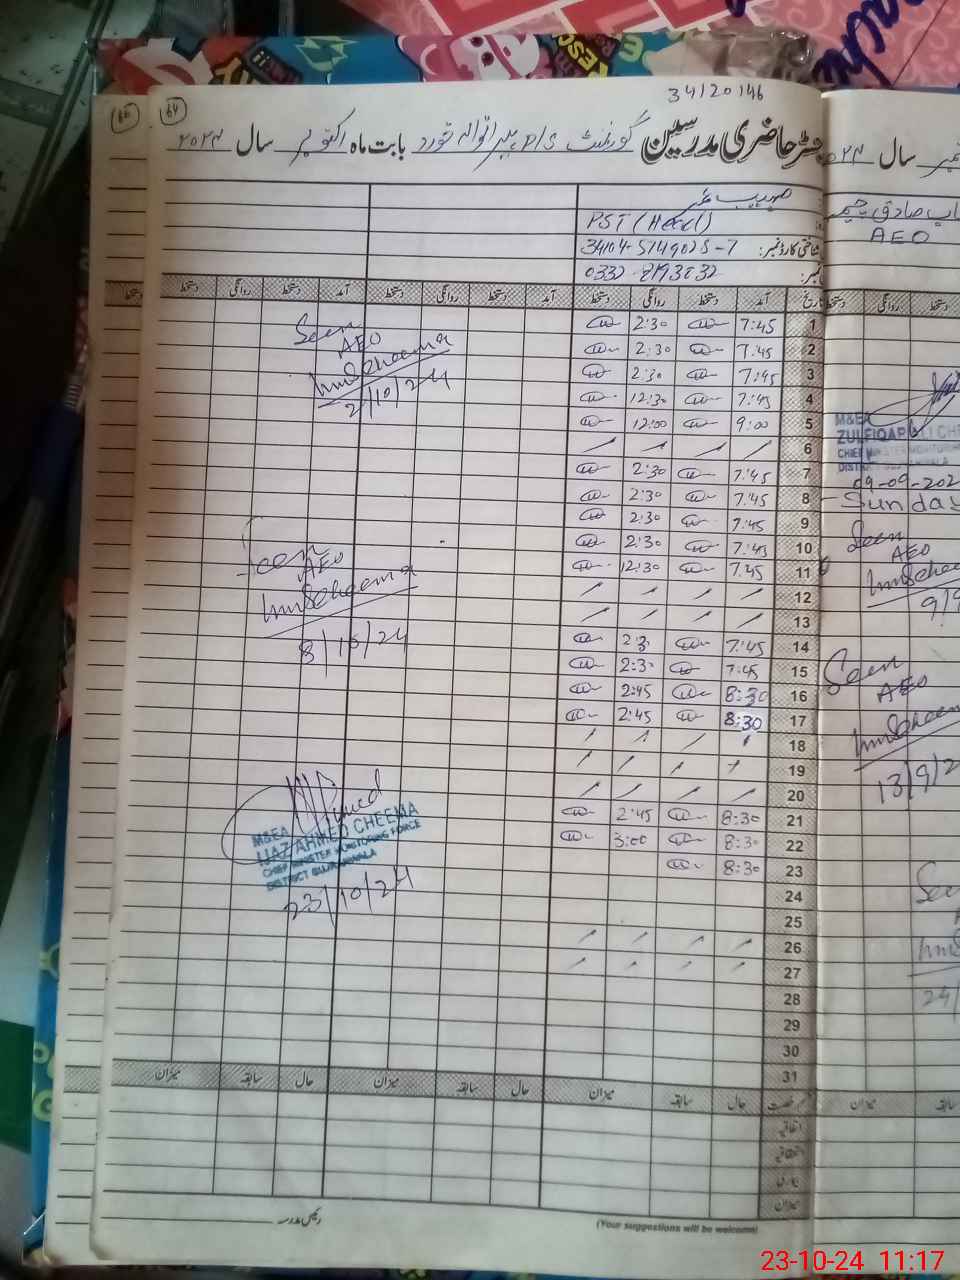 34120146
رجسٹر حاضری مدرسین گورنمنٹ P/S بابت ماہ اکتوبر سال ۲۰۲۴
64
PST (Head)
شناختی کارڈ نمبر: 34104-5149025-7
تاریخ آمد دستخط روانگی دستخط آمد دستخط روانگی دستخط
1 7:45 2:30
2 7:45 2:30
3 7:45 2:30
4 7:45 12:30
5 9:00 12:00
6
7 7:45 2:30
8 7:45 2:30
9 7:45 2:30
10 7:45 2:30
11 7:45 12:30
12
13
14 7:45 2:3
15 7:45 2:30
16 8:30 2:45
17 8:30 2:45
18
19
20
21 8:30 2:45
22 8:30 3:00
23 8:30
24
25
26
27
28
29
30
31
Seen
AEO
2/10/24
Seen
AEO
8/10/24
M&EA
IJAZ AHMED CHEEMA
CHIEF MINISTER MONITORING FORCE
DISTRICT GUJRANWALA
23/10/24
حال سابقہ میزان حال سابقہ میزان حال سابقہ میزان
اتفاقیہ
استحقاقیہ
بیماری
میزان
رئیس مدرسہ
(Your suggestions will be welcome)
سال
AEO
روانگی دستخط
M&EA
ZULFIQAR ALI CHE
CHIEF MINISTER MONITORING
DISTRICT GUJRANWALA
09-09-202
Sunday
Seen
AEO
9/9
Seen
AEO
13/9/2
24/
میزان سابقہ
23-10-24 11:17